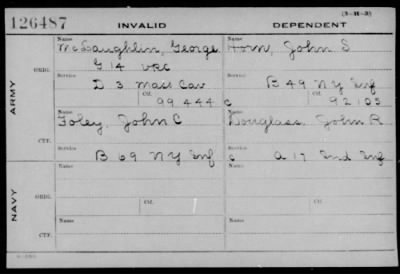 (3-H-3)
126487 INVALID DEPENDENT
ARMY
ORIG.
Name
McLaughlin, George
G 14 VRC
Service
D 3 Mass Cav
Ctf.
99 444
Name
Horn, John S
Service
B 49 NY Inf
Ctf.
C 92 105
CTF.
Name
Foley, John C
Service
B 69 NY Inf
Name
Douglass, John R
Service
C A 17 Ind Inf
NAVY
ORIG.
Name
Service
Ctf.
Name
Service
Ctf.
CTF.
Name
Service
Name
Service